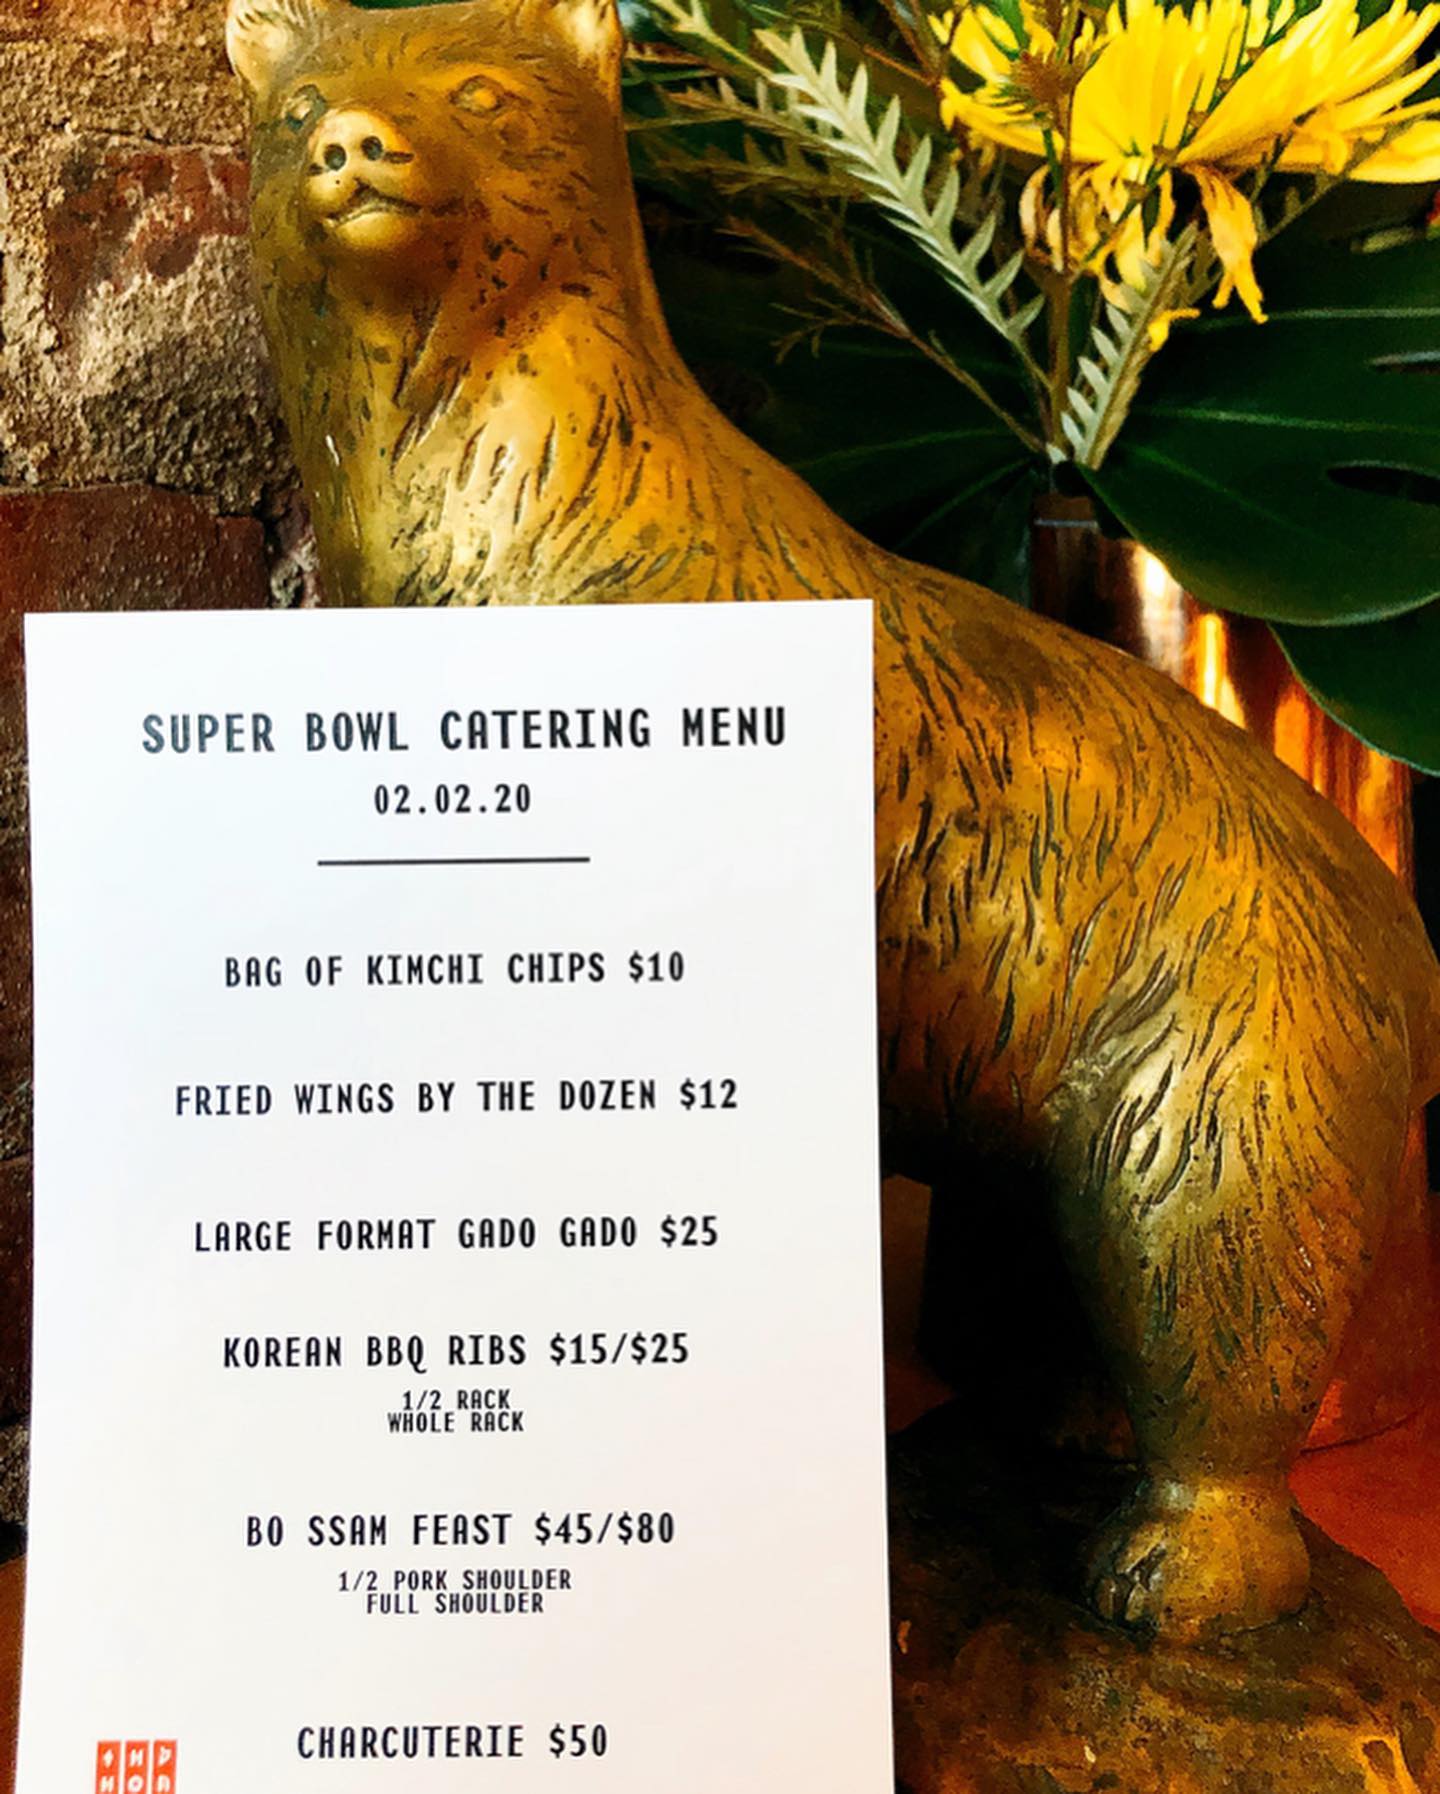 SUPER BOWL CATERING MENU
02.02.20
BAG OF KIMCHI CHIPS $10
FRIED WINGS BY THE DOZEN $12
LARGE FORMAT GADO GADO $25
KOREAN BBQ RIBS $15/$25
1/2 RACK
WHOLE RACK
BO SSAM FEAST $45/$80
1/2 PORK SHOULDER
FULL SHOULDER
CHARCUTERIE $50